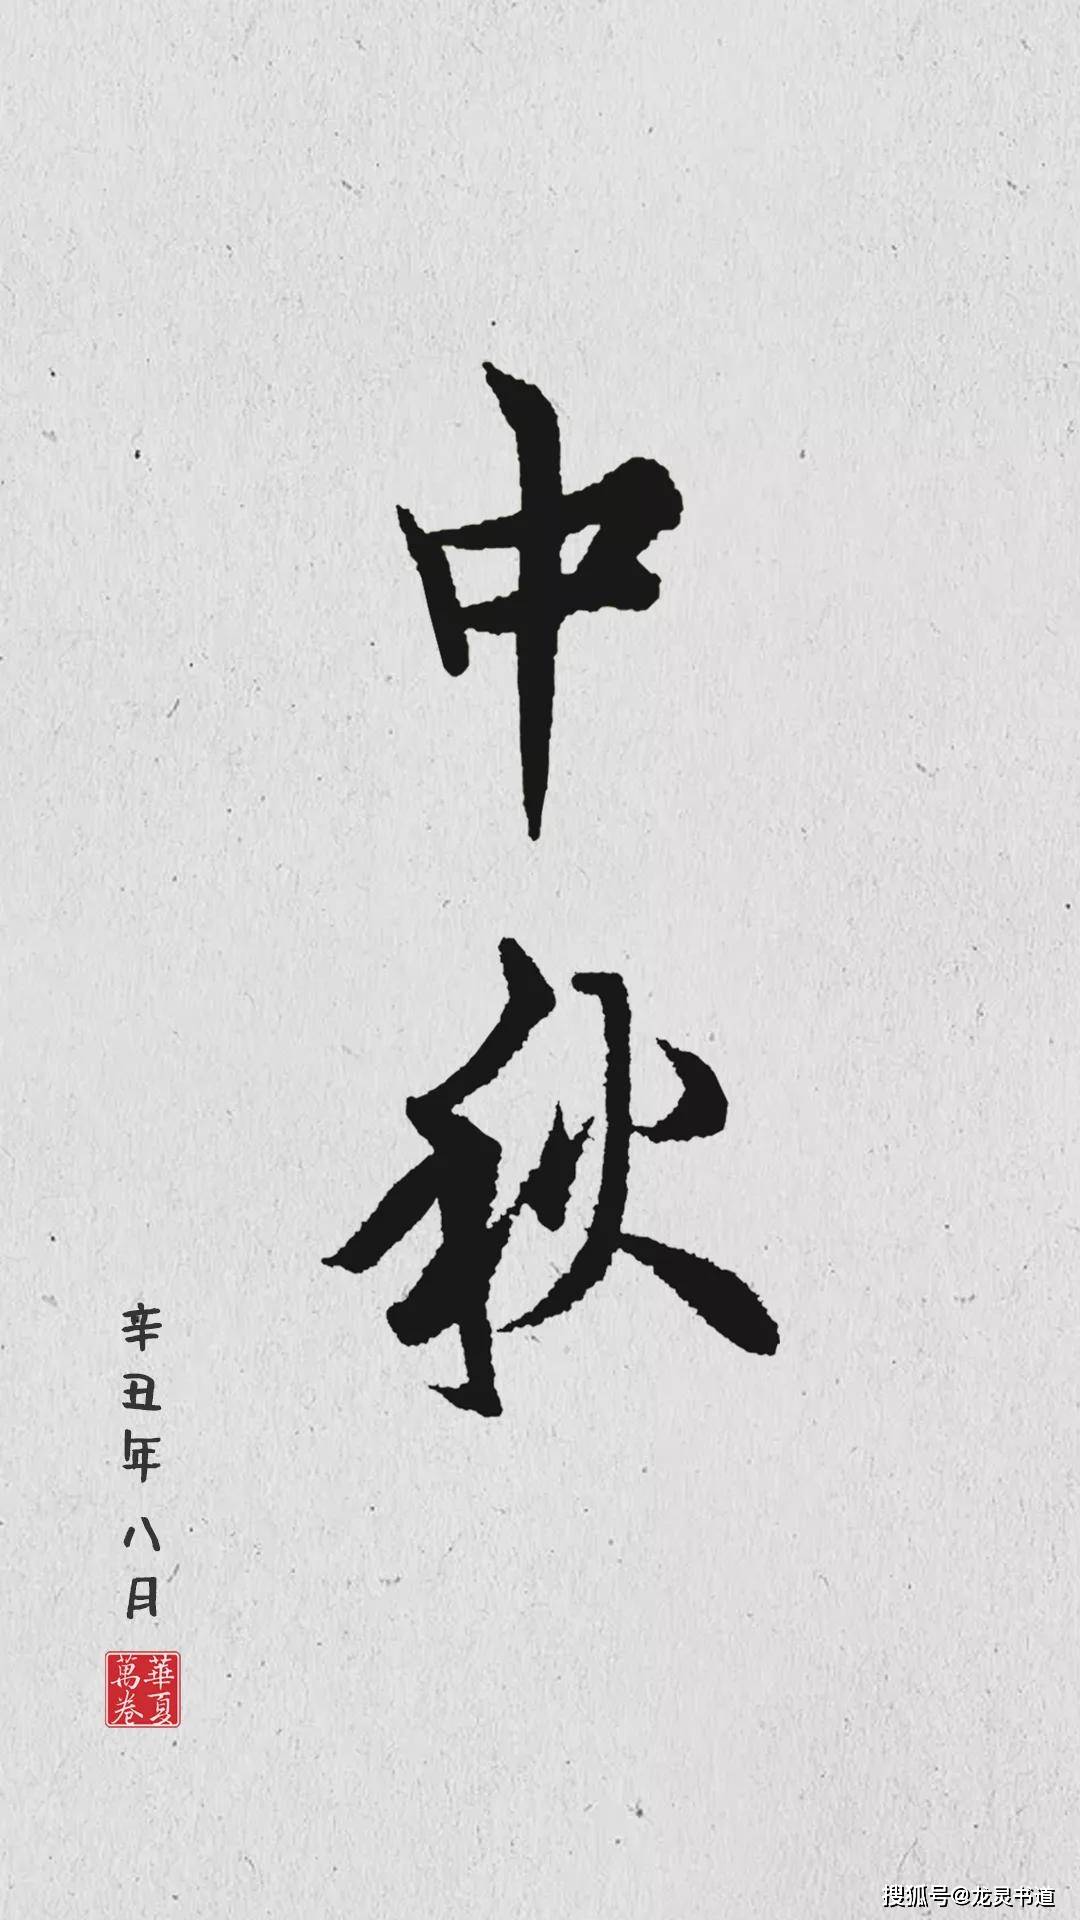 中秋
辛丑年八月
華夏
萬卷
搜狐号@龙灵书道